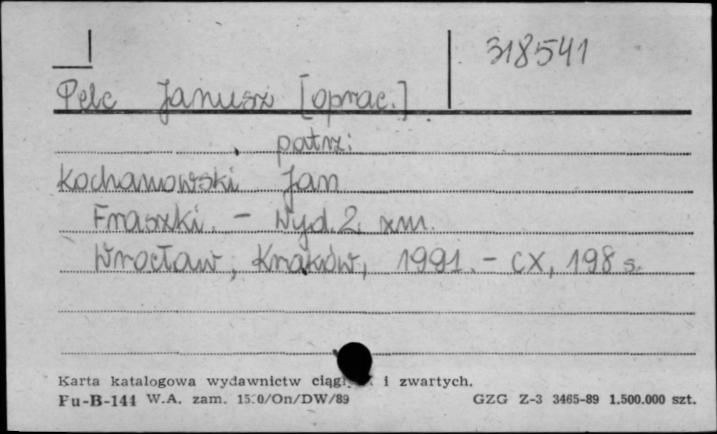 318541
Pelc Janusz [oprac.]
patrz:
Kochanowski Jan
Fraszki. – Wyd. 2 zm.
Wrocław, Kraków, 1991. – CX, 198 s.
Karta katalogowa wydawnictw i zwartych.
Fu-B-144 W.A. zam. /On/DW/89 GZG Z-3 3465-89 1.500.000 szt.